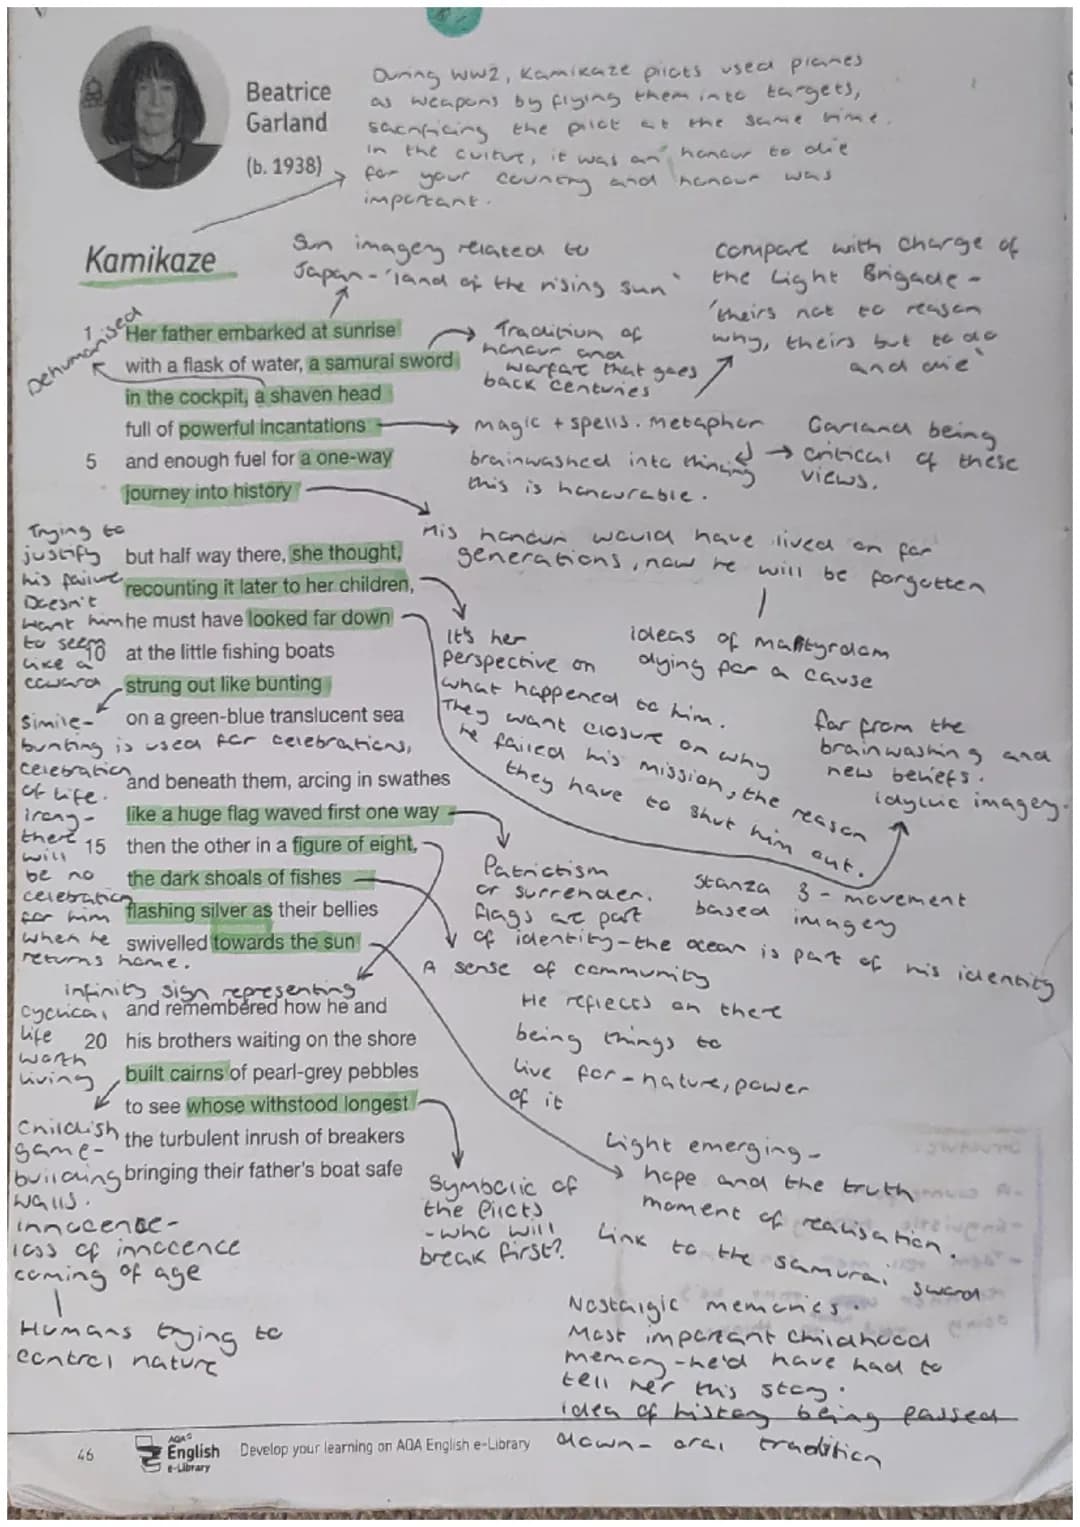 Beatrice
Garland
(b. 1938)
During WW2, Kamikaze pilots used planes
as weapons by flying them into targets,
sacrificing the pilot at the same time.
In the cultue, it was an honour to die
for your country and honour was
important.
Kamikaze
Sun imagery related to
Japan - 'land of the rising sun'
compare with charge of
the Light Brigade -
'theirs not to reason
why, theirs but to do
and die'
Dehumanised
1 Her father embarked at sunrise
with a flask of water, a samurai sword
in the cockpit, a shaven head
full of powerful incantations
5 and enough fuel for a one-way
journey into history
Tradition of
honour and
warfare that goes
back centuries
magic + spells. Metaphor
brainwashed into thinking
this is honourable.
Garland being
critical of these
views.
His honour would have lived on for
generations, now he will be forgotten
ideas of martyrdom
dying for a cause
Trying to
justify
his failure
Doesn't
want him
to seem
like a
coward
but half way there, she thought,
recounting it later to her children,
he must have looked far down
10 at the little fishing boats
strung out like bunting
on a green-blue translucent sea
It's her
perspective on
what happened to him.
They want closure on why
he failed his mission, the reason
they have to shut him out.
far from the
brainwashing and
new beliefs.
idyllic imagery.
Simile-
bunting is used for celebrations,
celebration
of life.
Irony-
there
will
be no
celebration
for him
when he
returns home.
and beneath them, arcing in swathes
like a huge flag waved first one way
15 then the other in a figure of eight,
the dark shoals of fishes
flashing silver as their bellies
swivelled towards the sun
Patriotism
or surrender.
flags are part
of identity-the ocean is part of his identity
Stanza 3 - movement
based imagery
A sense of community
infinity sign representing
cyclical
life
worth
living
and remembered how he and
20 his brothers waiting on the shore
built cairns of pearl-grey pebbles
to see whose withstood longest
the turbulent inrush of breakers
bringing their father's boat safe
He reflects on there
being things to
live for-nature, power
of it
Childish
game-
building
walls.
innocence-
loss of innocence
coming of age
Humans trying to
control nature
Symbolic of
the Pilots
-who will
break first?
Light emerging-
hope and the truth
moment of realisation.
Link to the samurai sword
Nostalgic memories.
Most important childhood
memory-he'd have had to
tell her this story.
idea of history being passed
down- oral tradition
46
AQA
English
e-Library
Develop your learning on AQA English e-Library